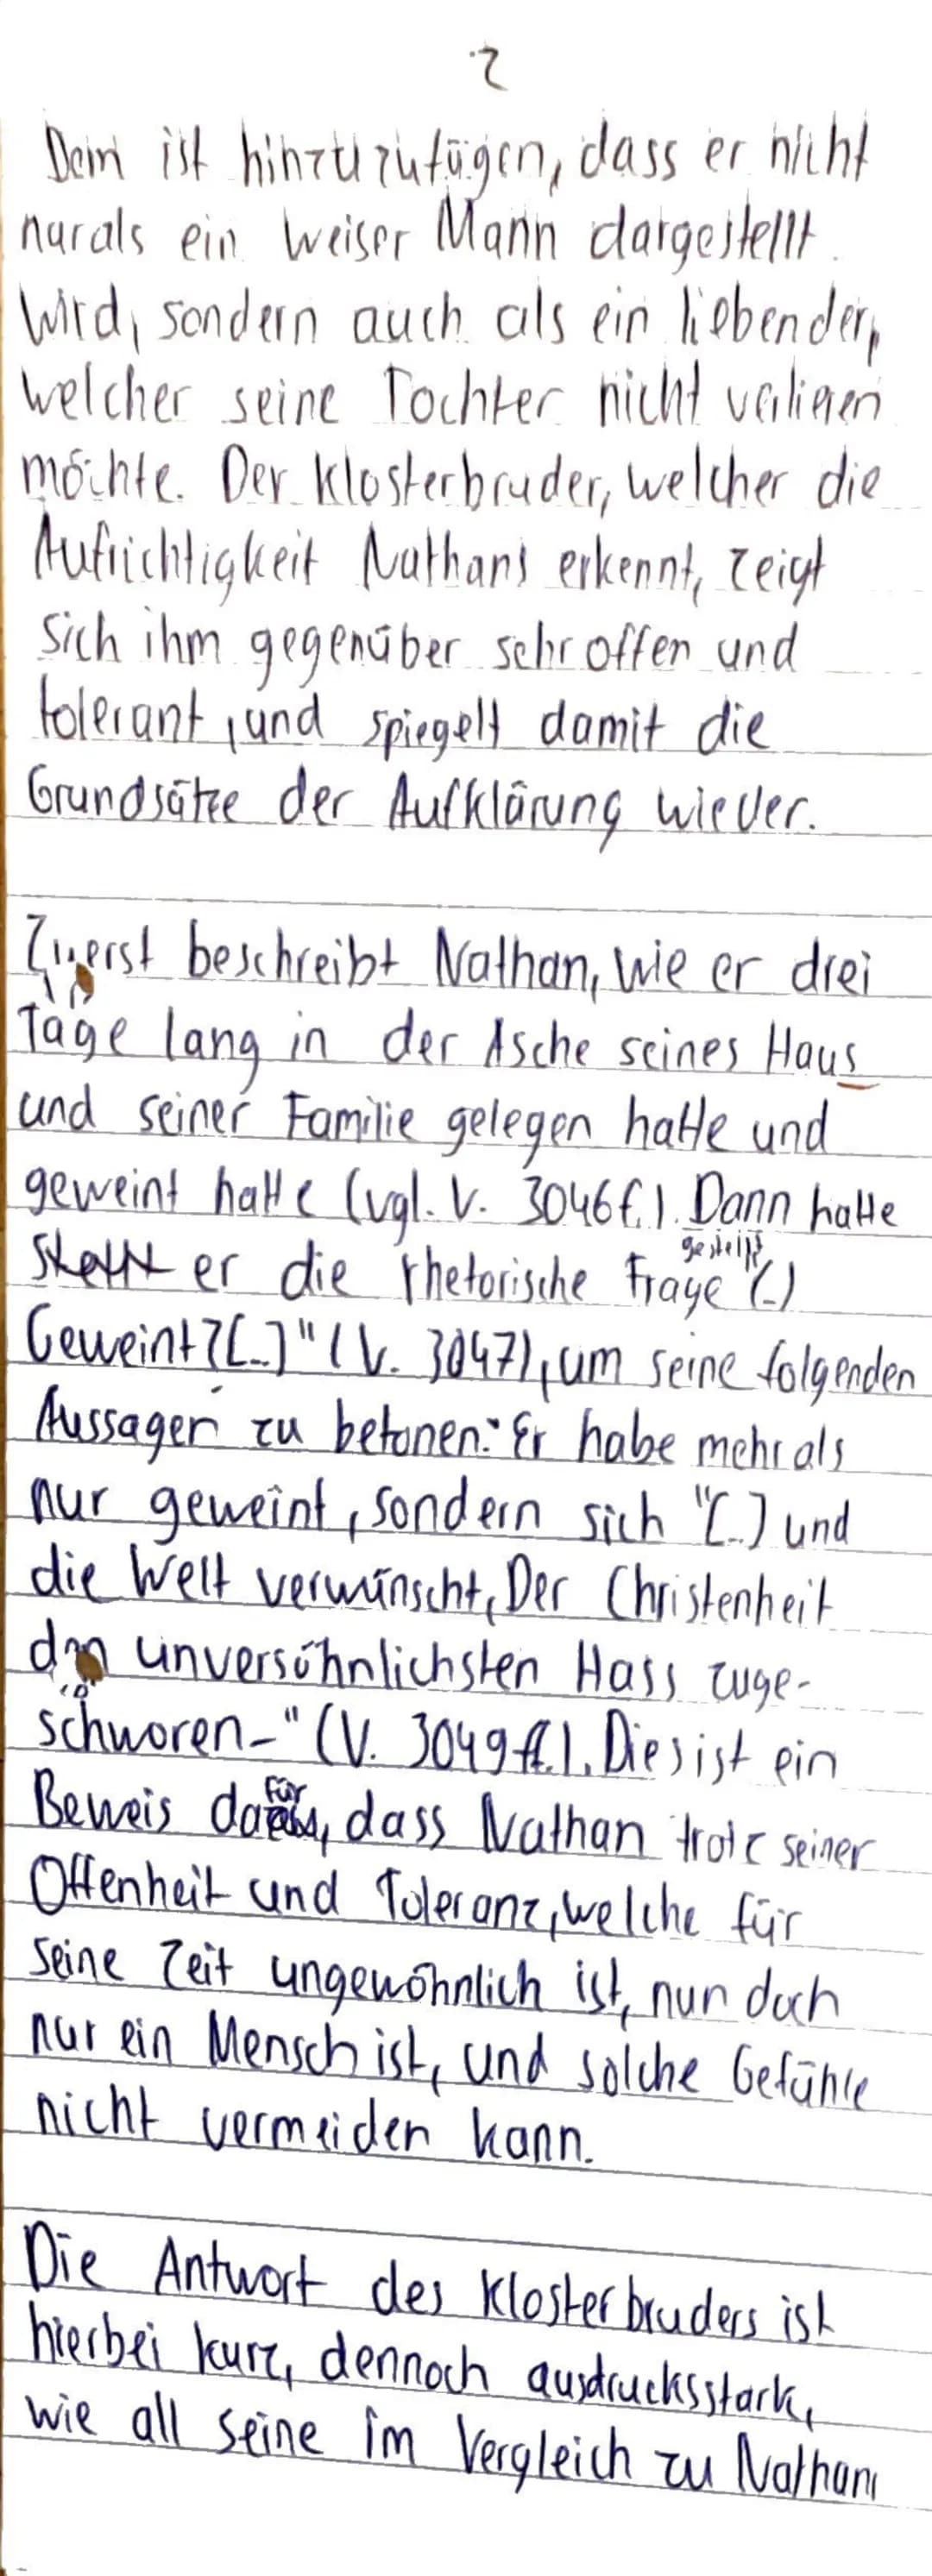 2.
Dem ist hinzuzufügen, dass er nicht
nur als ein weiser Mann dargestellt
wird, sondern auch als ein liebender,
welcher seine Tochter nicht verlieren
möchte. Der Klosterbruder, welcher die
Aufrichtigkeit Nathans erkennt, zeigt
sich ihm gegenüber sehr offen und
tolerant, und spiegelt damit die
Grundsätze der Aufklärung wieder.
Zuerst beschreibt Nathan, wie er drei
Tage lang in der Asche seines Haus
und seiner Familie gelegen hatte und
geweint hatte (vgl. V. 3046f.). Dann hatte
gestellt
stellt er die rhetorische Frage "(..)
Geweint?[..]" (V. 3047), um seine folgenden
Aussagen zu betonen: Er habe mehr als
nur geweint, sondern sich "[..] und
die Welt verwünscht, Der Christenheit
den unversöhnlichsten Hass zuge-
schworen-" (V. 3049ff.). Dies ist ein
Beweis dafür, dass Nathan trotz seiner
Offenheit und Toleranz, welche für
seine Zeit ungewöhnlich ist, nun doch
nur ein Mensch ist, und solche Gefühle
nicht vermeiden kann.
Die Antwort des Klosterbruders ist
hierbei kurz, dennoch ausdrucksstark,
wie all seine im Vergleich zu Nathans